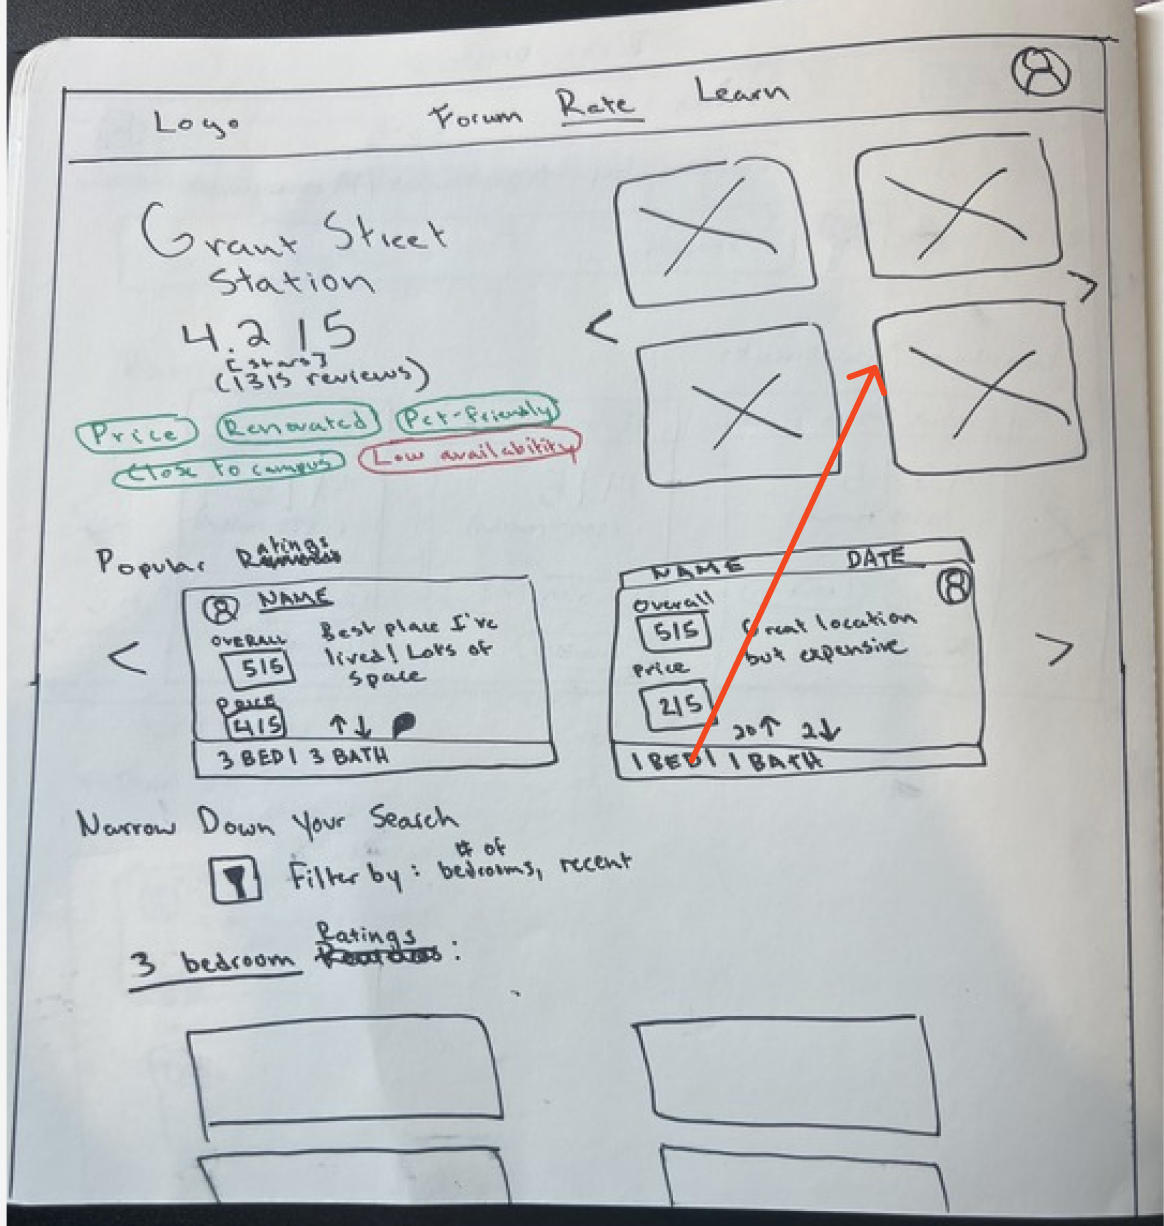 Logo Forum Rate Learn
Grant Street
Station
4.2 | 5
[stars]
(1315 reviews)
Price Renovated Pet-friendly
Close to campus Low availability
Popular Ratings
< >
NAME
OVERALL
5/5
Best place I've
lived! Lots of
space
PRICE
4/5 ↑↓
3 BED | 3 BATH
NAME DATE
Overall
5/5
Great location
but expensive
Price
2/5
20↑ 2↓
1 BED | 1 BATH
< >
Narrow Down Your Search
Filter by: # of bedrooms, recent
3 bedroom Ratings: